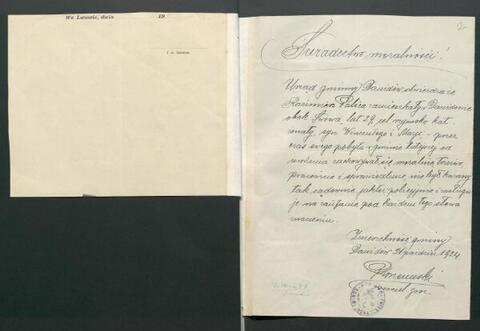 We Lwowie, dnia 19
Świadectwo moralności!
Urząd gminny Dawidów stwierdza że
Kazimierz Palica zamieszkały w Dawidowie
obok Lwowa, lat 29, rel. rzymsko kat.
żonaty, syn Wincentego i Maryi - przez
czas swego pobytu w gminie tutejszej od
urodzenia zachowywał się moralnie trzeźwo,
pracowicie i sprawiedliwie, nie był karany
tak sądownie jak też policyjnie i zasługu
je na zaufanie pod każdem tego słowa
znaczeniu.
Zwierzchność gminy
Dawidów 31 grudzień 1924